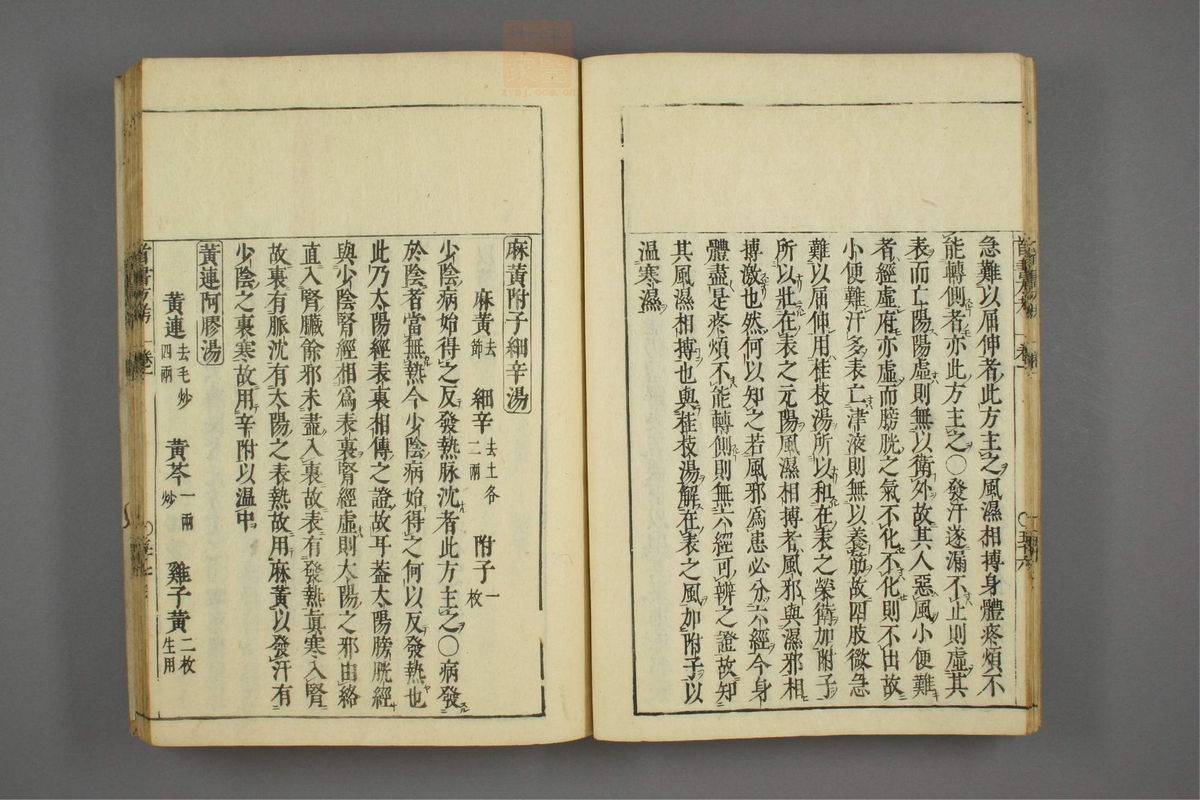 急難以屈伸者此方主之風濕相搏身體疼煩不
能轉側者亦此方主之○發汗遂漏不止則虛其
表而亡陽陽虛則無以衛外故其人惡風小便難
者經虛府亦虛而膀胱之氣不化不化則不出故
小便難汗多表亡津液則無以養筋故四肢微急
難以屈伸用桂枝湯所以和在表之榮衛加附子
所以壯在表之元陽風濕相搏者風邪與濕邪相
搏激也然何以知之若風邪為患必分六經今身
體盡是疼煩不能轉側則無六經可辨之證故知
其風濕相搏也與桂枝湯解在表之風加附子以
温寒濕
麻黃附子細辛湯
麻黃去節 細辛去土各二兩 附子一枚
少陰病始得之反發熱脉沈者此方主之○病發
於陰者當無熱今少陰病始得之何以反發熱也
此乃太陽經表裏相傳之證故耳葢太陽膀胱經
與少陰腎經相為表裏腎經虛則太陽之邪由絡
直入腎臟餘邪未盡入裏故表有發熱眞寒入腎
故裏有脈沈有太陽之表熱故用麻黃以發汗有
少陰之裏寒故用辛附以温中
黃連阿膠湯
黃連去毛炒四兩 黃芩一兩炒 雞子黃二枚生用